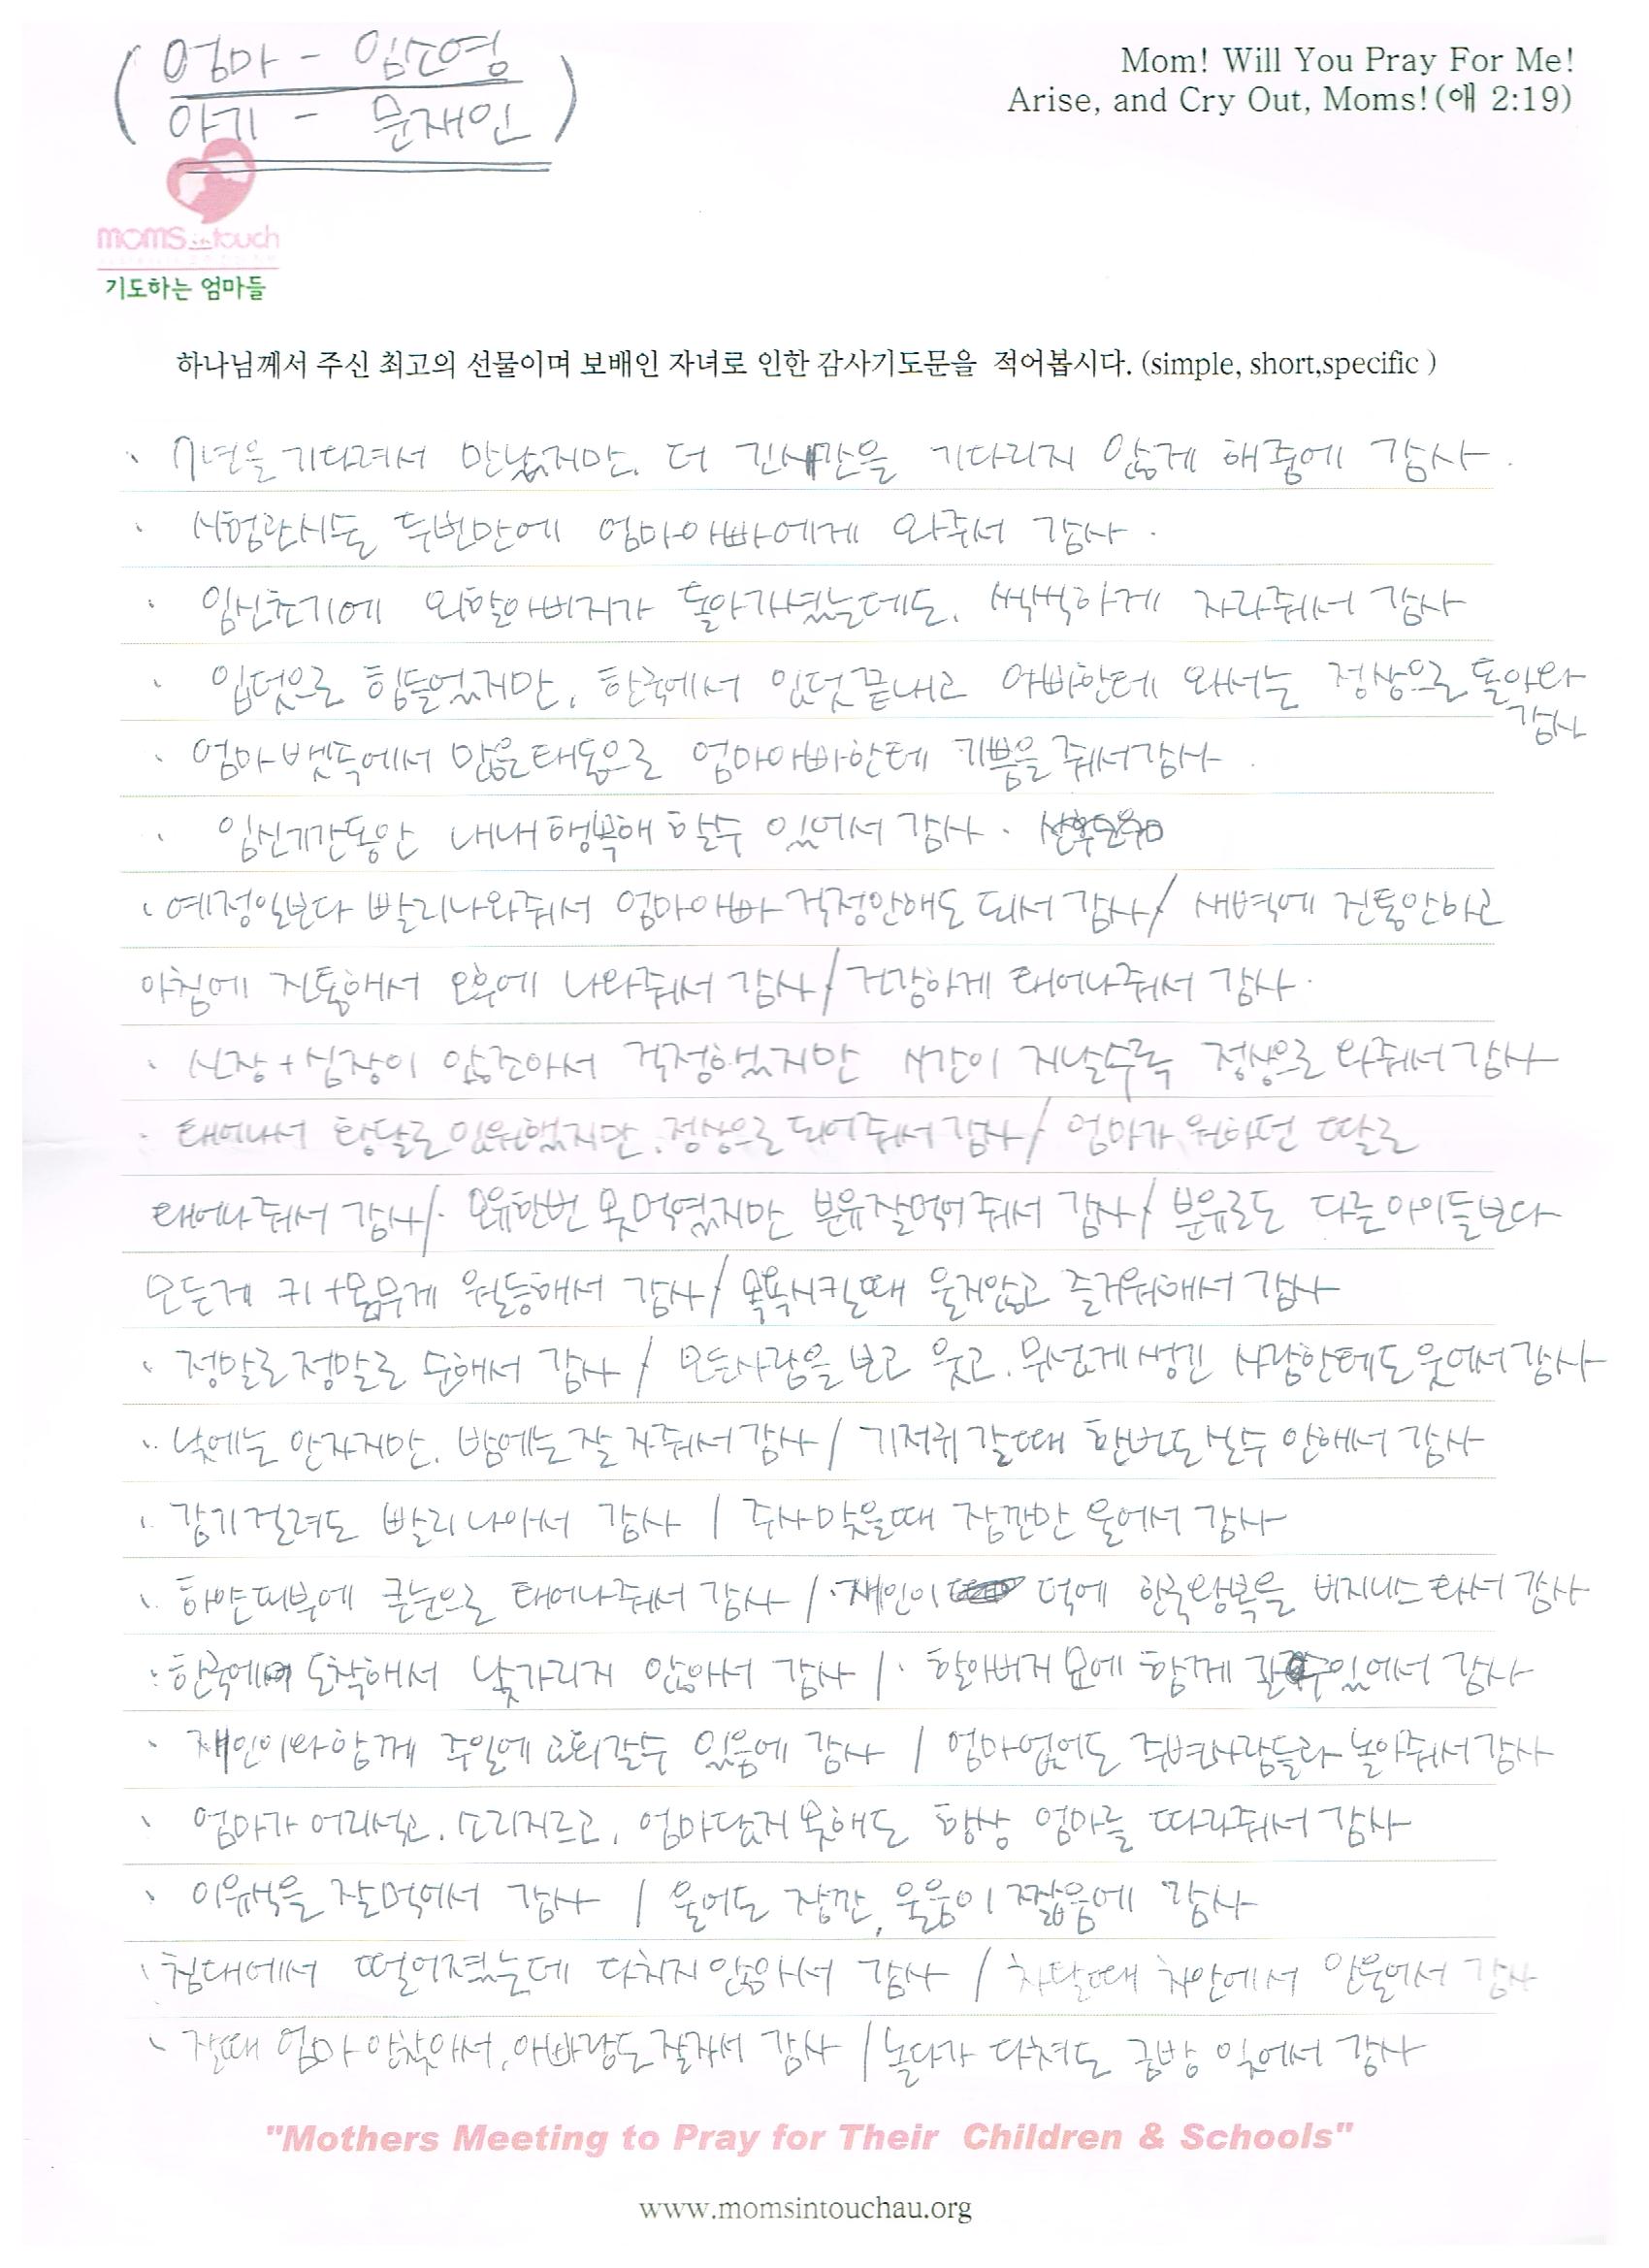 (엄마 - 임소영
아기 - 문재인)
Mom! Will You Pray For Me!
Arise, and Cry Out, Moms!(애 2:19)
moms in touch
기도하는 엄마들
하나님께서 주신 최고의 선물이며 보배인 자녀로 인한 감사기도문을 적어봅시다. (simple, short,specific )
· 7년을 기다려서 만났지만. 더 긴시간을 기다리지 않게 해줌에 감사.
· 시험관시돌 두번만에 엄마아빠에게 와줘서 감사.
· 임신초기에 외할아버지가 돌아가셨는데도. 씩씩하게 자라줘서 감사
· 입덧으로 힘들었지만, 한국에서 입덧끝내고 아빠한테 와서는 정상으로 돌아와
감사
· 엄마 뱃속에서 많은태동으로 엄마아빠한테 기쁨을 줘서감사.
· 임신기간동안 내내행복해 할수 있어서 감사.
· 예정일보다 빨리나와줘서 엄마아빠 걱정안해도 되서 감사/ 새벽에 진통안하고
아침에 진통해서 오후에 나와줘서 감사/ 건강하게 태어나줘서 감사.
· 신장+심장이 않좋아서 걱정했었지만 시간이 지날수록 정상으로 와줘서 감사
· 태어나서 황달로 입원했지만. 정상으로 되어줘서 감사/ 엄마가 원하던 딸로
태어나줘서 감사/. 모유한번 못먹였지만 분유잘먹어줘서 감사/ 분유로도 다른아이들보다
모든게 키+몸무게 월등해서 감사/ 목욕시킬때 울지않고 즐거워해서 감사
· 정말로정말로 순해서 감사 / 모든사람을 보고 웃고. 무섭게생긴 사람한테도 웃어서 감사
· 낮에는 안자지만. 밤에는 잘 자줘서 감사/ 기저귀 갈때 한번도 실수 안해서 감사
· 감기걸려도 빨리나아서 감사 / 주사맞을때 잠깐만 울어서 감사
· 하얀피부에 큰눈으로 태어나줘서 감사 /· 재인이 덕에 한국왕복을 비지니스타서 감사
· 한국에 도착해서 낯가리지 않아서 감사 /· 할아버지 묘에 함께 갈수있어서 감사
· 재인이와함께 주일에 교회갈수 있음에 감사 / 엄마없어도 주변사람들과 놀아줘서 감사
· 엄마가 어리석고. 소리지르고, 엄마답지못해도 항상 엄마를 따라줘서 감사
· 이유식을 잘먹어서 감사 / 울어도 잠깐, 울음이 짧음에 감사
· 침대에서 떨어졌는데 다치지않아서 감사 / 차탈때 차안에서 안울어서 감사
· 잘때 엄마 안찾아서, 아빠랑도 잘자서 감사 / 놀다가 다쳐도 금방 잊어서 감사
"Mothers Meeting to Pray for Their Children & Schools"
www.momsintouchau.org